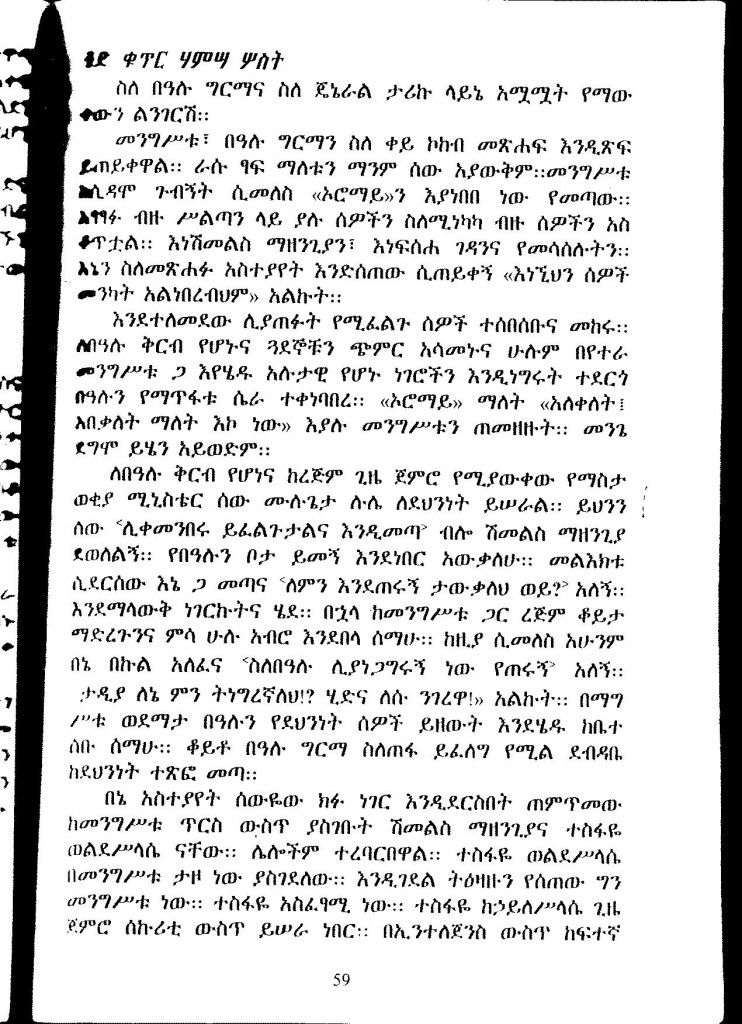 ቁጥር ሃምሣ ሦስት
ስለ በዓሉ ግርማና ስለ ጄኔራል ታሪኩ ላይኔ አሟሟት የማው
ልንገርሽ፡፡
መንግሥቱ፣ በዓሉ ግርማን ስለ ቀይ ኮከብ መጽሐፍ እንዲጽፍ
ይጠይቀዋል፡፡ ራሱ ፃፍ ማለቱን ማንም ሰው አያውቅም፡፡መንግሥቱ
ሲዳሞ ጉብኝት ሲመለስ «ኦሮማይ»ን እያነበበ ነው የመጣው፡፡
ብዙ ሥልጣን ላይ ያሉ ሰዎችን ስለሚነካካ ብዙ ሰዎችን አስ
ቆጥቷል፡፡ እነሽመልስ ማዘንጊያን፣ እነፍሰሐ ገዳንና የመሳሰሉትን፡፡
እኔን ስለመጽሐፉ አስተያየት እንድሰጠው ሲጠይቀኝ «እነኚህን ሰዎች
መንካት አልነበረብህም» አልኩት፡፡
እንደተለመደው ሊያጠፉት የሚፈልጉ ሰዎች ተሰበሰቡና መከሩ፡፡
ለበዓሉ ቅርብ የሆኑና ጓደኞቹን ጭምር አሳመኑና ሁሉም በየተራ
መንግሥቱ ጋ እየሄዱ አሉታዊ የሆኑ ነገሮችን እንዲነግሩት ተደርጎ
በዓሉን የማጥፋቱ ሴራ ተቀነባበረ፡፡ «ኦሮማይ» ማለት «አለቀለት፤
አበቃለት ማለት እኮ ነው» እያሉ መንግሥቱን ጠመዘዙት፡፡ መንጌ
ደግሞ ይሄን አይወድም፡፡
ለበዓሉ ቅርብ የሆነና ከረጅም ጊዜ ጀምሮ የሚያውቀው የማስታ
ወቂያ ሚኒስቴር ሰው ሙሉጌታ ሉሌ ለደህንነት ይሠራል፡፡ ይህንን
ሰው ‹ሊቀመንበሩ ይፈልጉታልና እንዲመጣ› ብሎ ሽመልስ ማዘንጊያ
ደወለልኝ፡፡ የበዓሉን ቦታ ይመኝ እንደነበር አውቃለሁ፡፡ መልእክቱ
ሲደርሰው እኔ ጋ መጣና ‹ለምን እንደጠሩኝ ታውቃለህ ወይ?› አለኝ፡፡
እንደማላውቅ ነገርኩትና ሄደ፡፡ በኋላ ከመንግሥቱ ጋር ረጅም ቆይታ
ማድረጉንና ምሳ ሁሉ አብሮ እንደበላ ሰማሁ፡፡ ከዚያ ሲመለስ አሁንም
በኔ በኩል አለፈና ‹ስለበዓሉ ሊያነጋግሩኝ ነው የጠሩኝ› አለኝ፡፡
ታዲያ ለኔ ምን ትነግረኛለህ!? ሂድና ለሱ ንገረዋ!» አልኩት፡፡ በማግ
ሥቱ ወደማታ በዓሉን የደህንነት ሰዎች ይዘውት እንደሄዱ ከቤተ
ሰቡ ሰማሁ፡፡ ቆይቶ በዓሉ ግርማ ስለጠፋ ይፈለግ የሚል ደብዳቤ
ከደህንነት ተጽፎ መጣ፡፡
በኔ አስተያየት ሰውዬው ክፉ ነገር እንዲደርስበት ጠምጥመው
ከመንግሥቱ ጥርስ ውስጥ ያስገቡት ሽመልስ ማዘንጊያና ተስፋዬ
ወልደሥላሴ ናቸው፡፡ ሌሎችም ተረባርበዋል፡፡ ተስፋዬ ወልደሥላሴ
በመንግሥቱ ታዞ ነው ያስገደለው፡፡ እንዲገደል ትዕዛዙን የሰጠው ግን
መንግሥቱ ነው፡፡ ተስፋዬ አስፈፃሚ ነው፡፡ ተስፋዬ ከኃይለሥላሴ ጊዜ
ጀምሮ ሰኩሪቲ ውስጥ ይሠራ ነበር፡፡ በኢንተለጀንስ ውስጥ ከፍተኛ
59